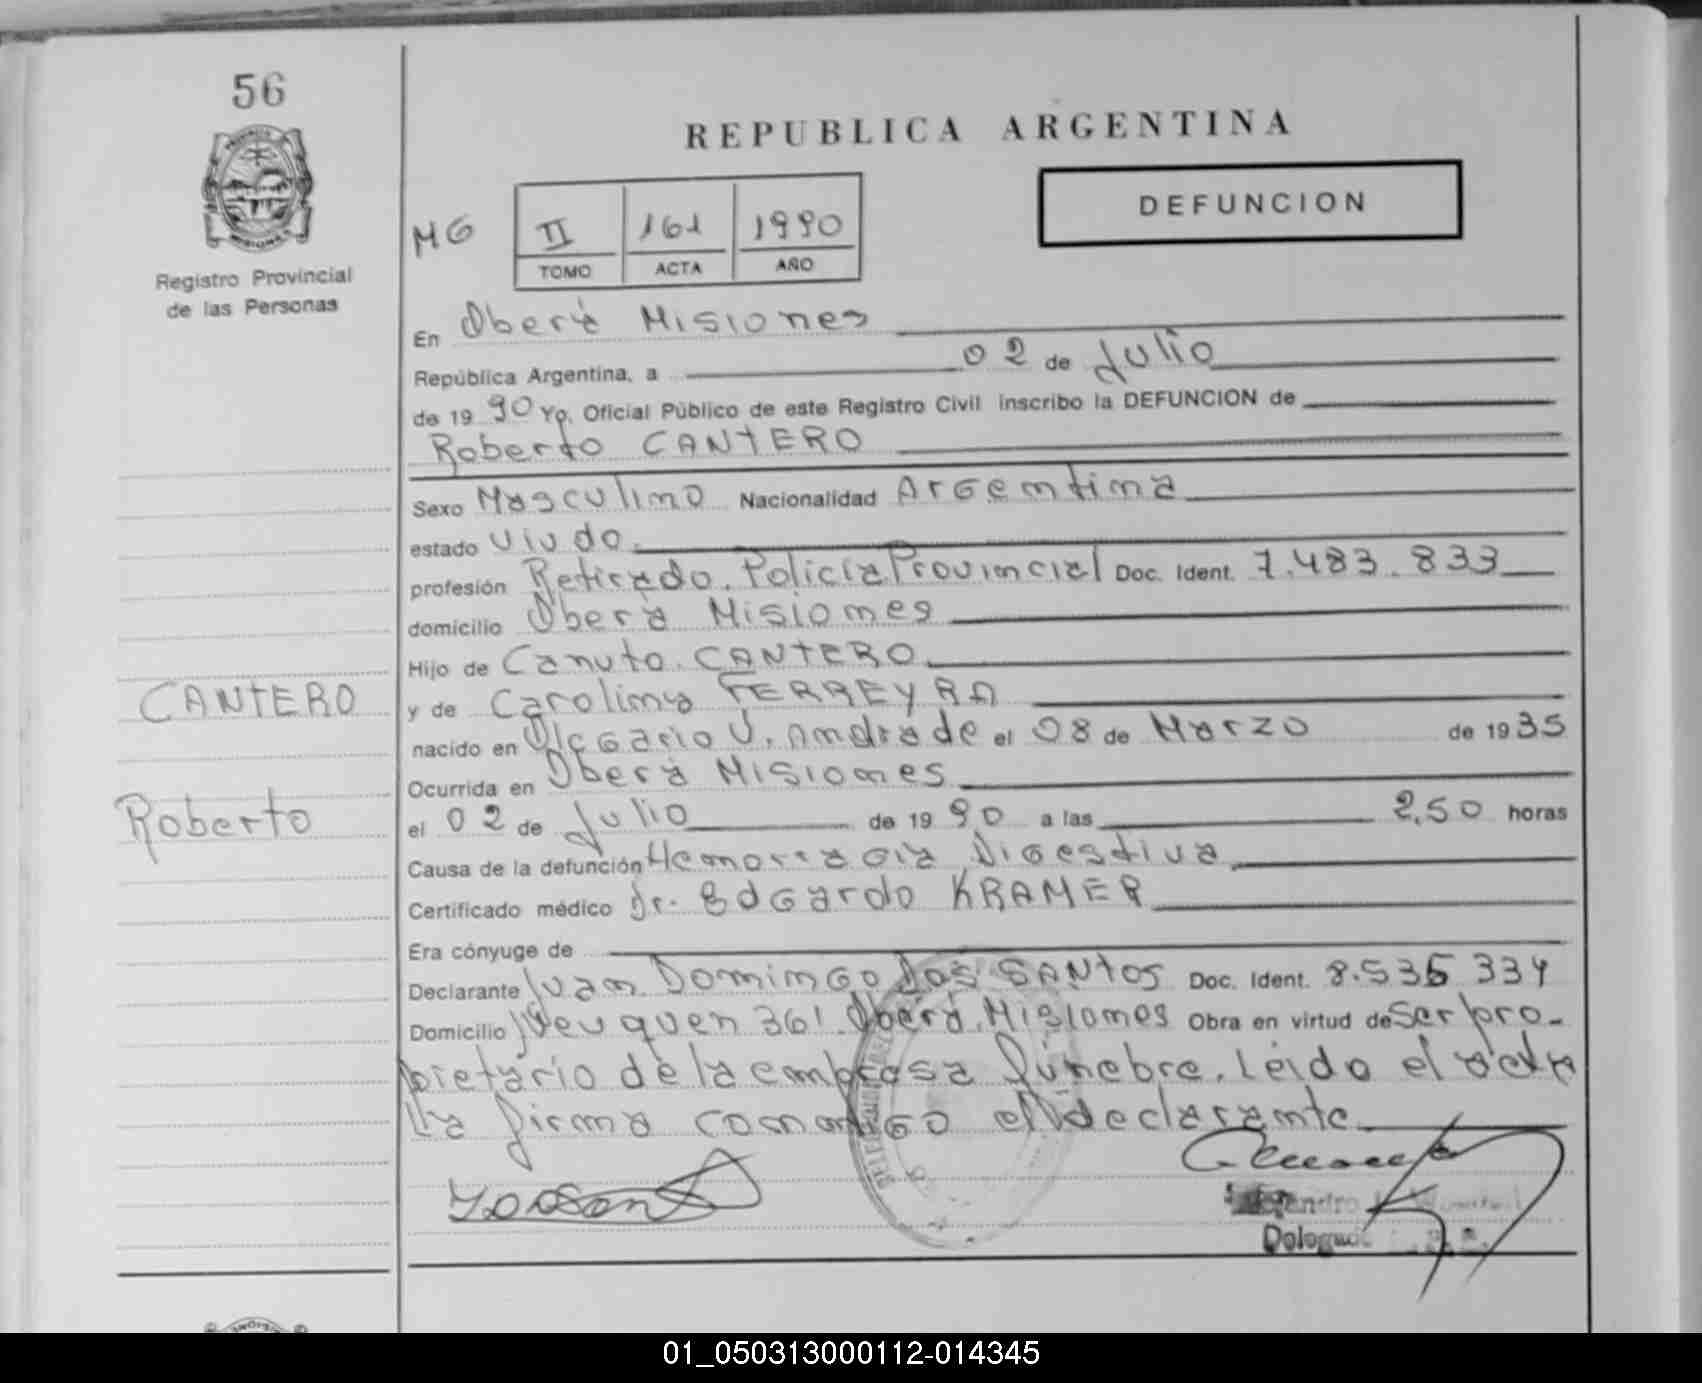 56
REPUBLICA ARGENTINA
DEFUNCION
MG
II 161 1990
TOMO ACTA AÑO
Registro Provincial
de las Personas
En Oberá Misiones
República Argentina, a 02 de Julio
de 1990 Yo, Oficial Público de este Registro Civil inscribo la DEFUNCION de
Roberto CANTERO
Sexo Masculino Nacionalidad Argentina
estado viudo.
profesión Retirado. Policía Provincial Doc. Ident. 7.483.833
domicilio Oberá Misiones
Hijo de Canuto. CANTERO
CANTERO
y de Carolina FERREYRA
nacido en Olegario V. Andrade el 08 de Marzo de 1935
Ocurrida en Oberá Misiones
Roberto
el 02 de Julio de 1990 a las 2,50 horas
Causa de la defunción Hemorragia Digestiva
Certificado médico Dr. Edgardo KRAMER
Era cónyuge de
Declarante Juan Domingo Dos SANTOS Doc. Ident. 8.535 334
Domicilio Neuquen 361. Oberá. Misiones Obra en virtud de ser pro-
pietario de la empresa fúnebre. Leído el acta
la firma conmigo el declarante.
01_050313000112-014345